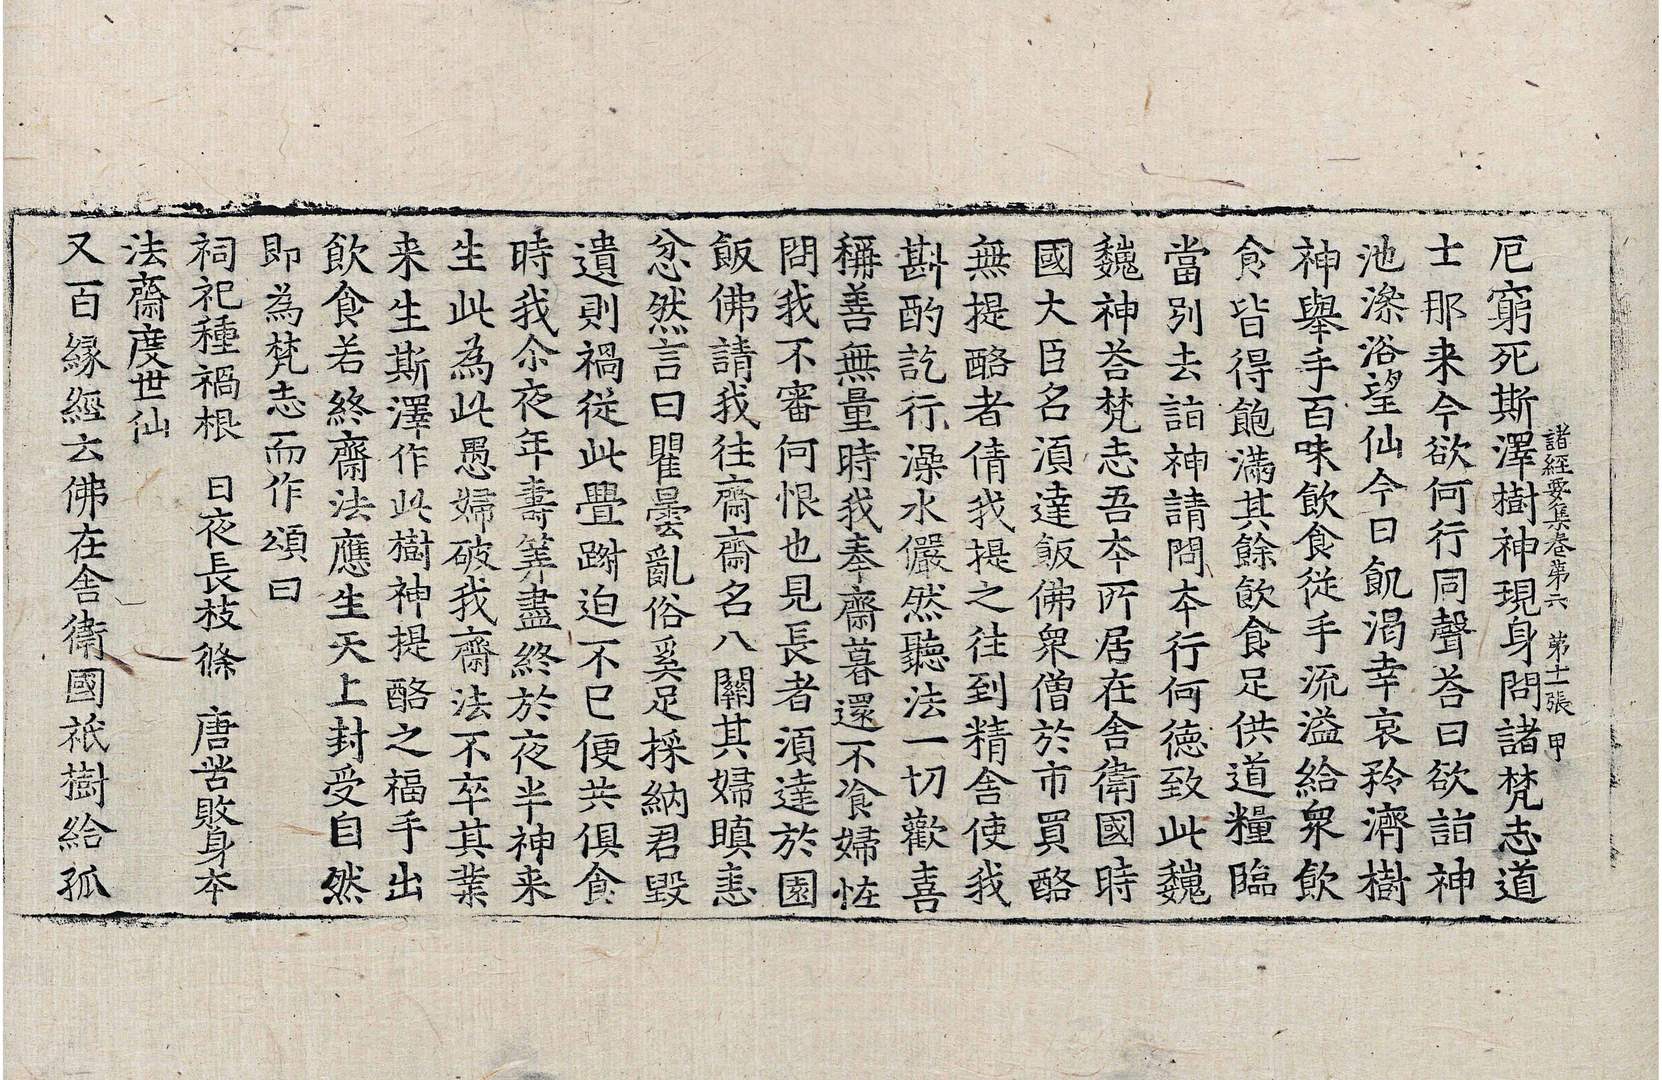 諸經要集卷第六 第十二張 甲
厄窮死斯澤樹神現身問諸梵志道
士那来今欲何行同聲荅曰欲詣神
池澡浴望仙今日飢渴幸哀矜濟樹
神舉手百味飲食從手流溢給衆飲
食皆得飽滿其餘飲食足供道糧臨
當別去詣神請問夲行何德致此巍
巍神荅梵志吾夲所居在舍衛國時
國大臣名湏達飯佛衆僧於市買酪
無提酪者倩我提之往到精舍使我
斟酌訖行澡水儼然聽法一切歡喜
稱善無量時我奉齋暮還不飡婦恠
問我不審何恨也見長者湏達於園
飯佛請我往齋齋名八關其婦瞋恚
忿然言曰瞿曇亂俗奚足採納君毀
遺則禍從此疊蹴迫不已便共俱食
時我尒夜年壽筭盡終於夜半神来
生此為此愚婦破我齋法不卒其業
来生斯澤作此樹神提酪之福手出
飲食若終齋法應生天上封受自然
即為梵志而作頌曰
祠祀種禍根 日夜長枝條 唐苦敗身夲
法齋度世仙
又百緣經云佛在舍衛國祇樹給孤